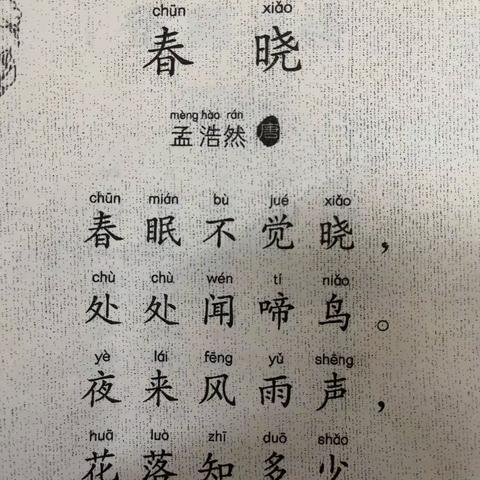 chūn xiǎo
春晓
mèng hào rán
孟浩然 唐
chūn mián bù jué xiǎo
春眠不觉晓，
chù chù wén tí niǎo
处处闻啼鸟。
yè lái fēng yǔ shēng
夜来风雨声，
huā luò zhī duō shǎo
花落知多少